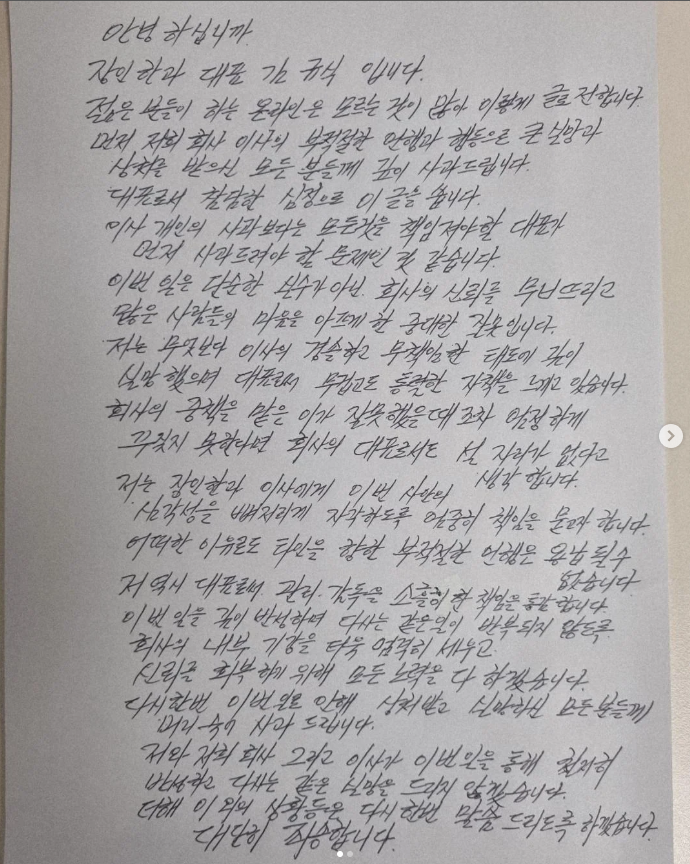 안녕하십니까.
장인한과 대표 김규식 입니다.
젊은 분들이 하는 온라인은 모르는 것이 많아 이렇게 글로 전합니다
먼저 저희 회사 이사의 부적절한 언행과 행동으로 큰 실망과
상처를 받으신 모든 분들께 깊이 사과드립니다.
대표로서 참담한 심정으로 이 글을 씁니다.
이사 개인의 사과보다는 모든것을 책임져야할 대표가
먼저 사과드려야 할 문제인 것 같습니다.
이번 일은 단순한 실수가 아닌. 회사의 신뢰를 무너뜨리고
많은 사람들의 마음을 아프게 한 중대한 잘못입니다.
저는 무엇보다 이사의 경솔하고 무책임한 태도에 깊이
실망 했으며 대표로써 무겁고도 통렬한 자책을 느끼고 있습니다.
회사의 중책을 맡은 이가 잘못했을때 조차 엄정하게
꾸짖지 못한다면 회사의 대표로서도 설 자리가 없다고
생각 합니다.
저는 장인한과 이사에게 이번 사안의
심각성을 뼈저리게 자각하도록 엄중히 책임을 묻고자 합니다.
어떠한 이유로도 타인을 향한 부적절한 언행은 용납 될수
없습니다
저 역시 대표로써. 관리. 감독을 소홀히 한 책임을 통감합니다.
이번 일을 깊이 반성하며 다시는 같은일이 반복되지 않도록
회사의 내부 기강을 더욱 엄격히 세우고.
신뢰를 회복하기 위해 모든 노력을 다 하겠습니다.
다시한번 이번일로 인해 상처받고 실망하신 모든분들께
머리 숙여 사과 드립니다.
저와 저희 회사 그리고 이사가 이번일을 통해 철저히
반성하고 다시는 같은 실망을 드리지 않겠습니다.
더해 이 외의 상황들은 다시한번 말씀 드리도록 하겠습니다.
대단히 죄송합니다.